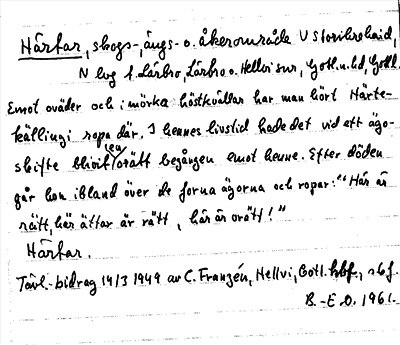 Härtar, skogs-, ängs- o. åkerområde V Storibrohaid,
N lvg f. Lärbro, Lärbro o. Hellvi snr, Gotl. n. hd, Gotl.
Emot oväder och i mörka höstkvällar har man hört Härte-
källingi ropa där. I hennes livstid hade det vid ett ägo-
skifte blivit en orätt begången emot henne. Efter döden
går hon ibland över de forna ägorna och ropar: "Här är
rätt, här ättar är rätt, här är orätt!"
Härtar.
Tävl.-bidrag 14/3 1949 av C. Franzén, Hellvi, Gotl.
B.-E. O. 1961.